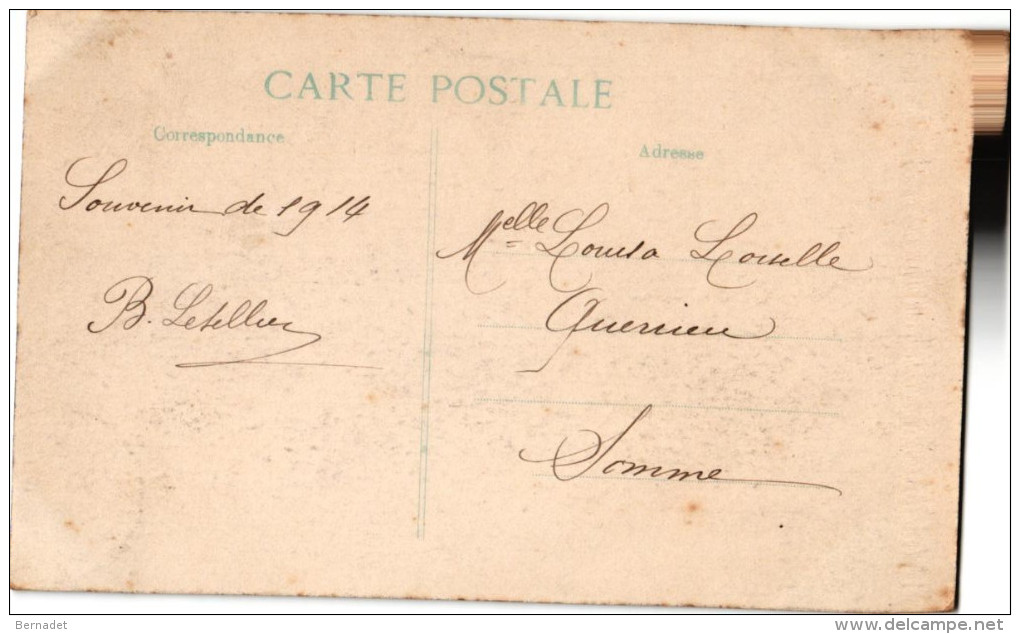 CARTE POSTALE
Correspondance
Adresse
Souvenir de 1914
B. Letellier
Melle Louisa Loiselle
Querrieu
Somme
Bernadet
delcampe.net